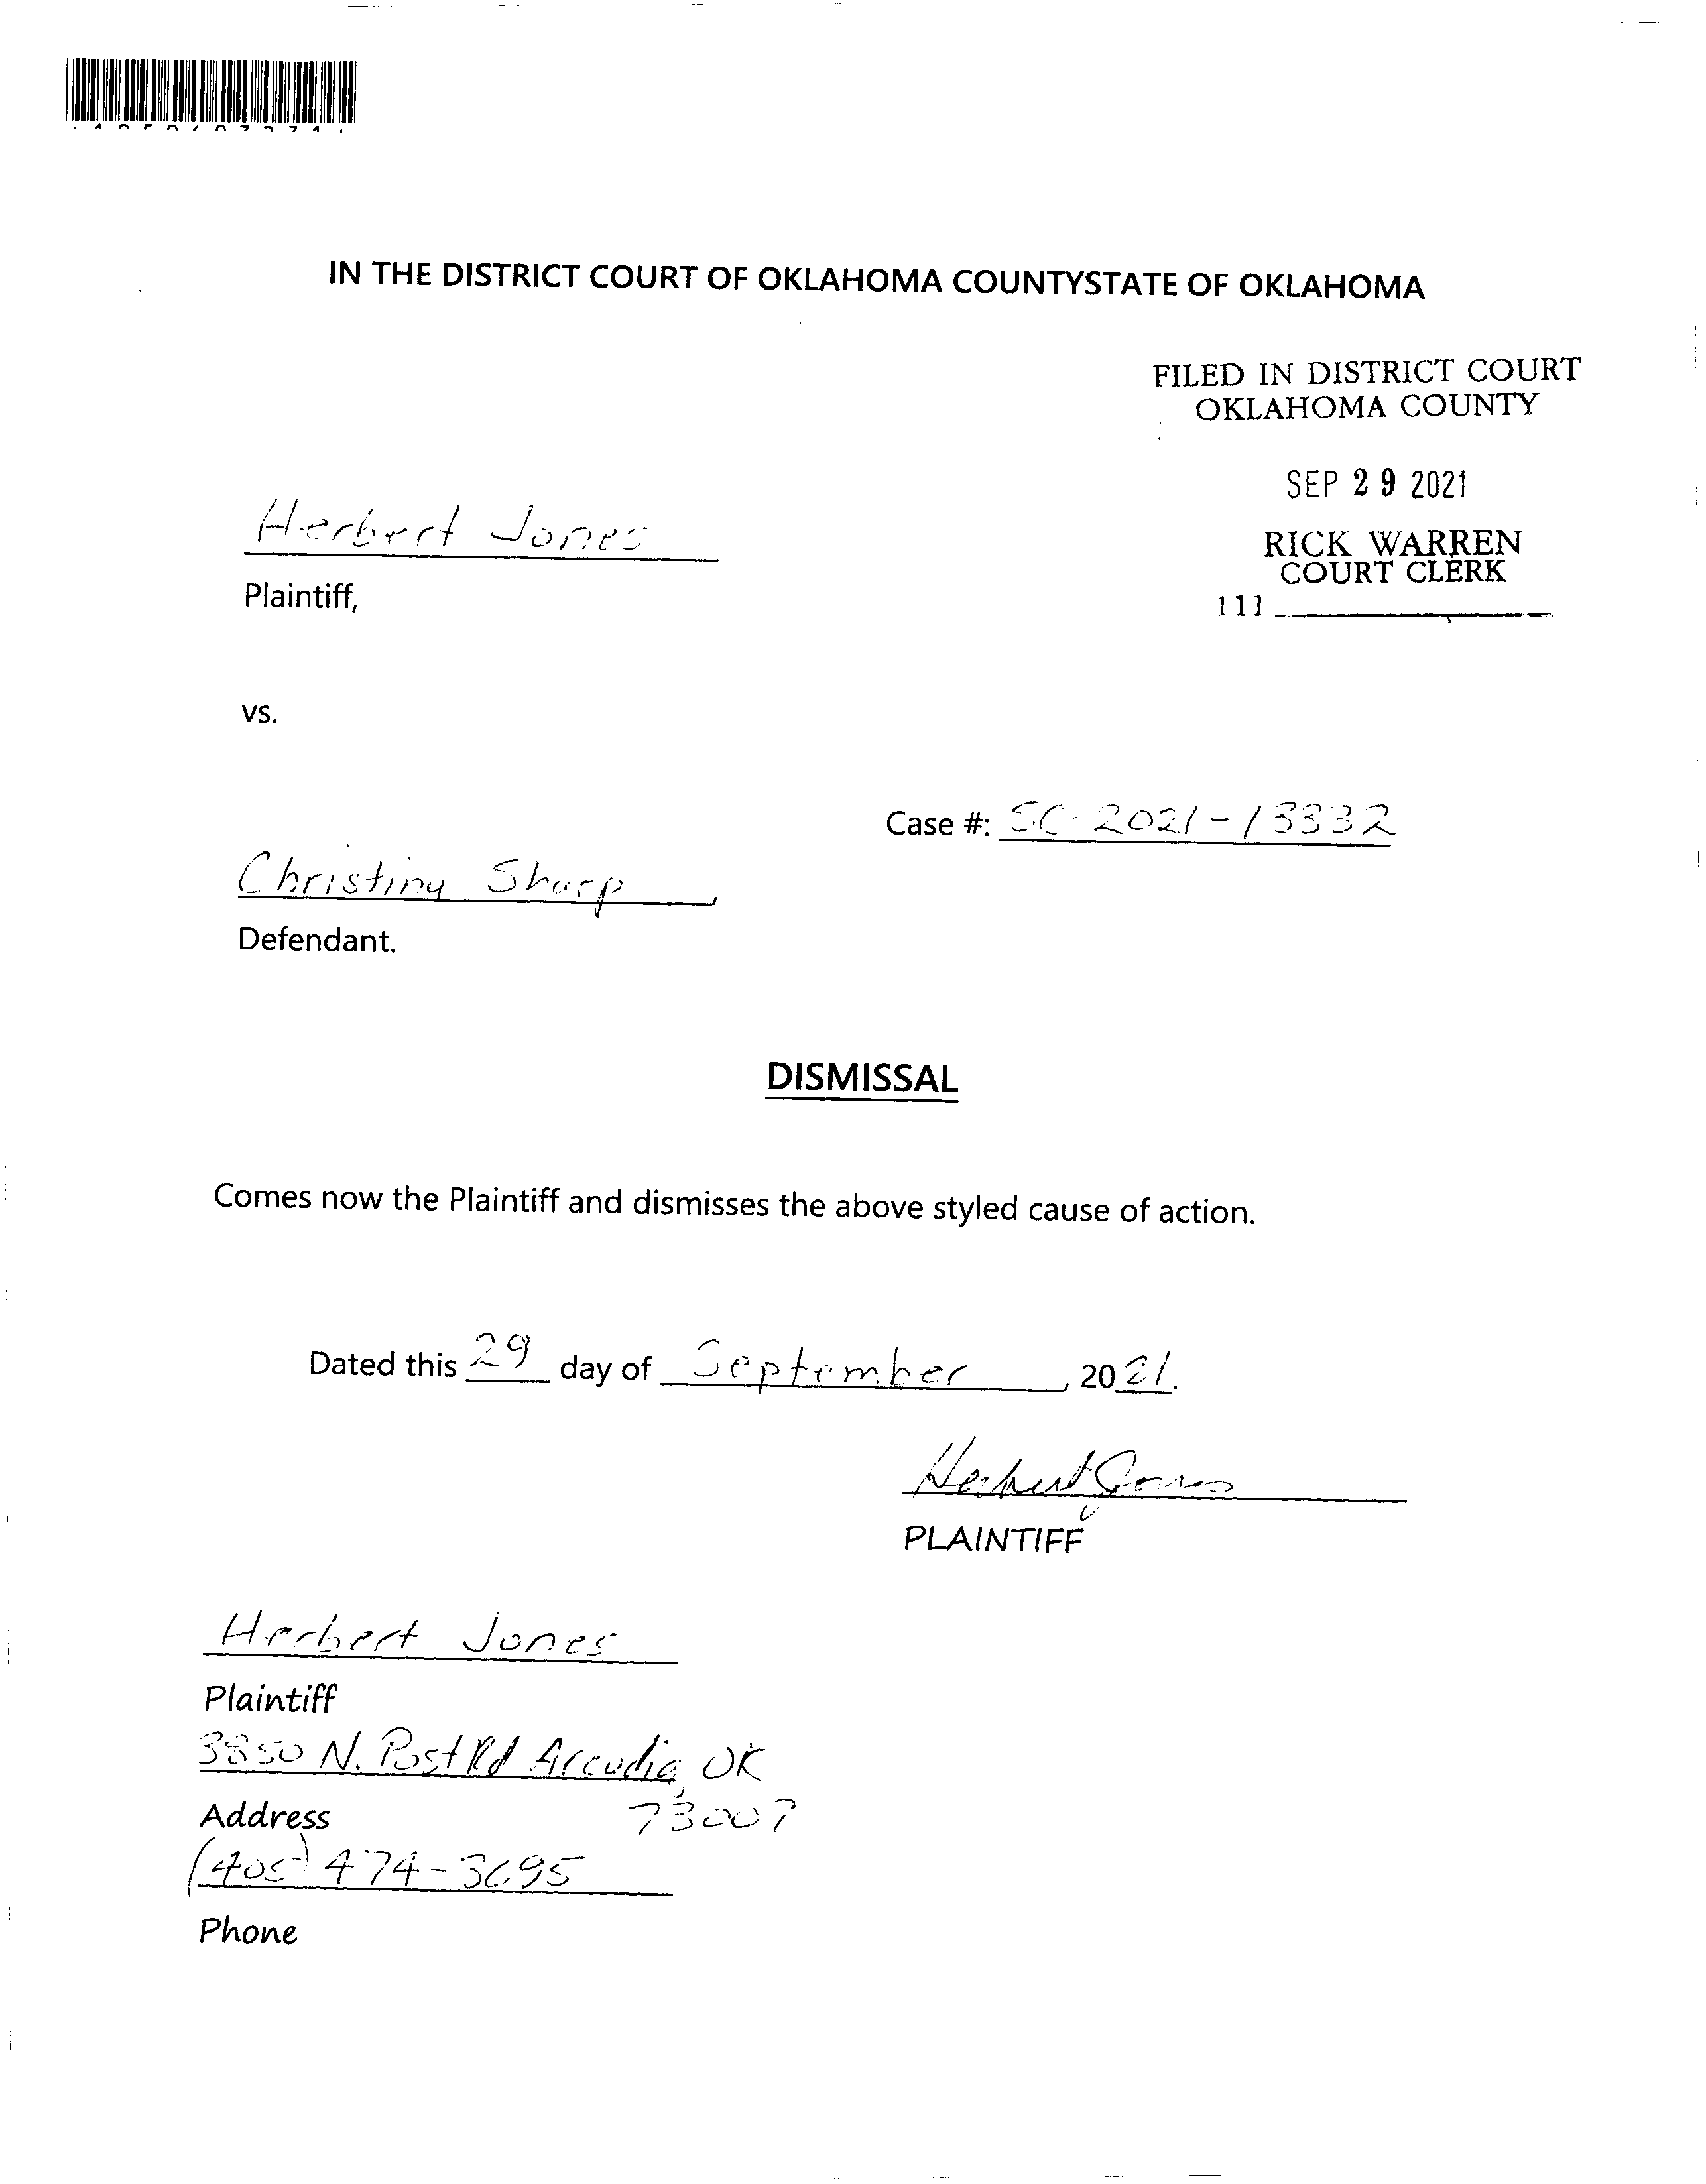 IN THE DISTRICT COURT OF OKLAHOMA COUNTYSTATE OF OKLAHOMA
FILED IN DISTRICT COURT
OKLAHOMA COUNTY
SEP 29 2021
RICK WARREN
COURT CLERK
111
Herbert Jones
Plaintiff,
vs.
Case #: SC-2021-13332
Christina Sharp,
Defendant.
DISMISSAL
Comes now the Plaintiff and dismisses the above styled cause of action.
Dated this 29 day of September, 2021.
Herbert Jones
PLAINTIFF
Herbert Jones
Plaintiff
3850 N. Post Rd Arcadia, OK
Address 73007
(405) 474-3695
Phone